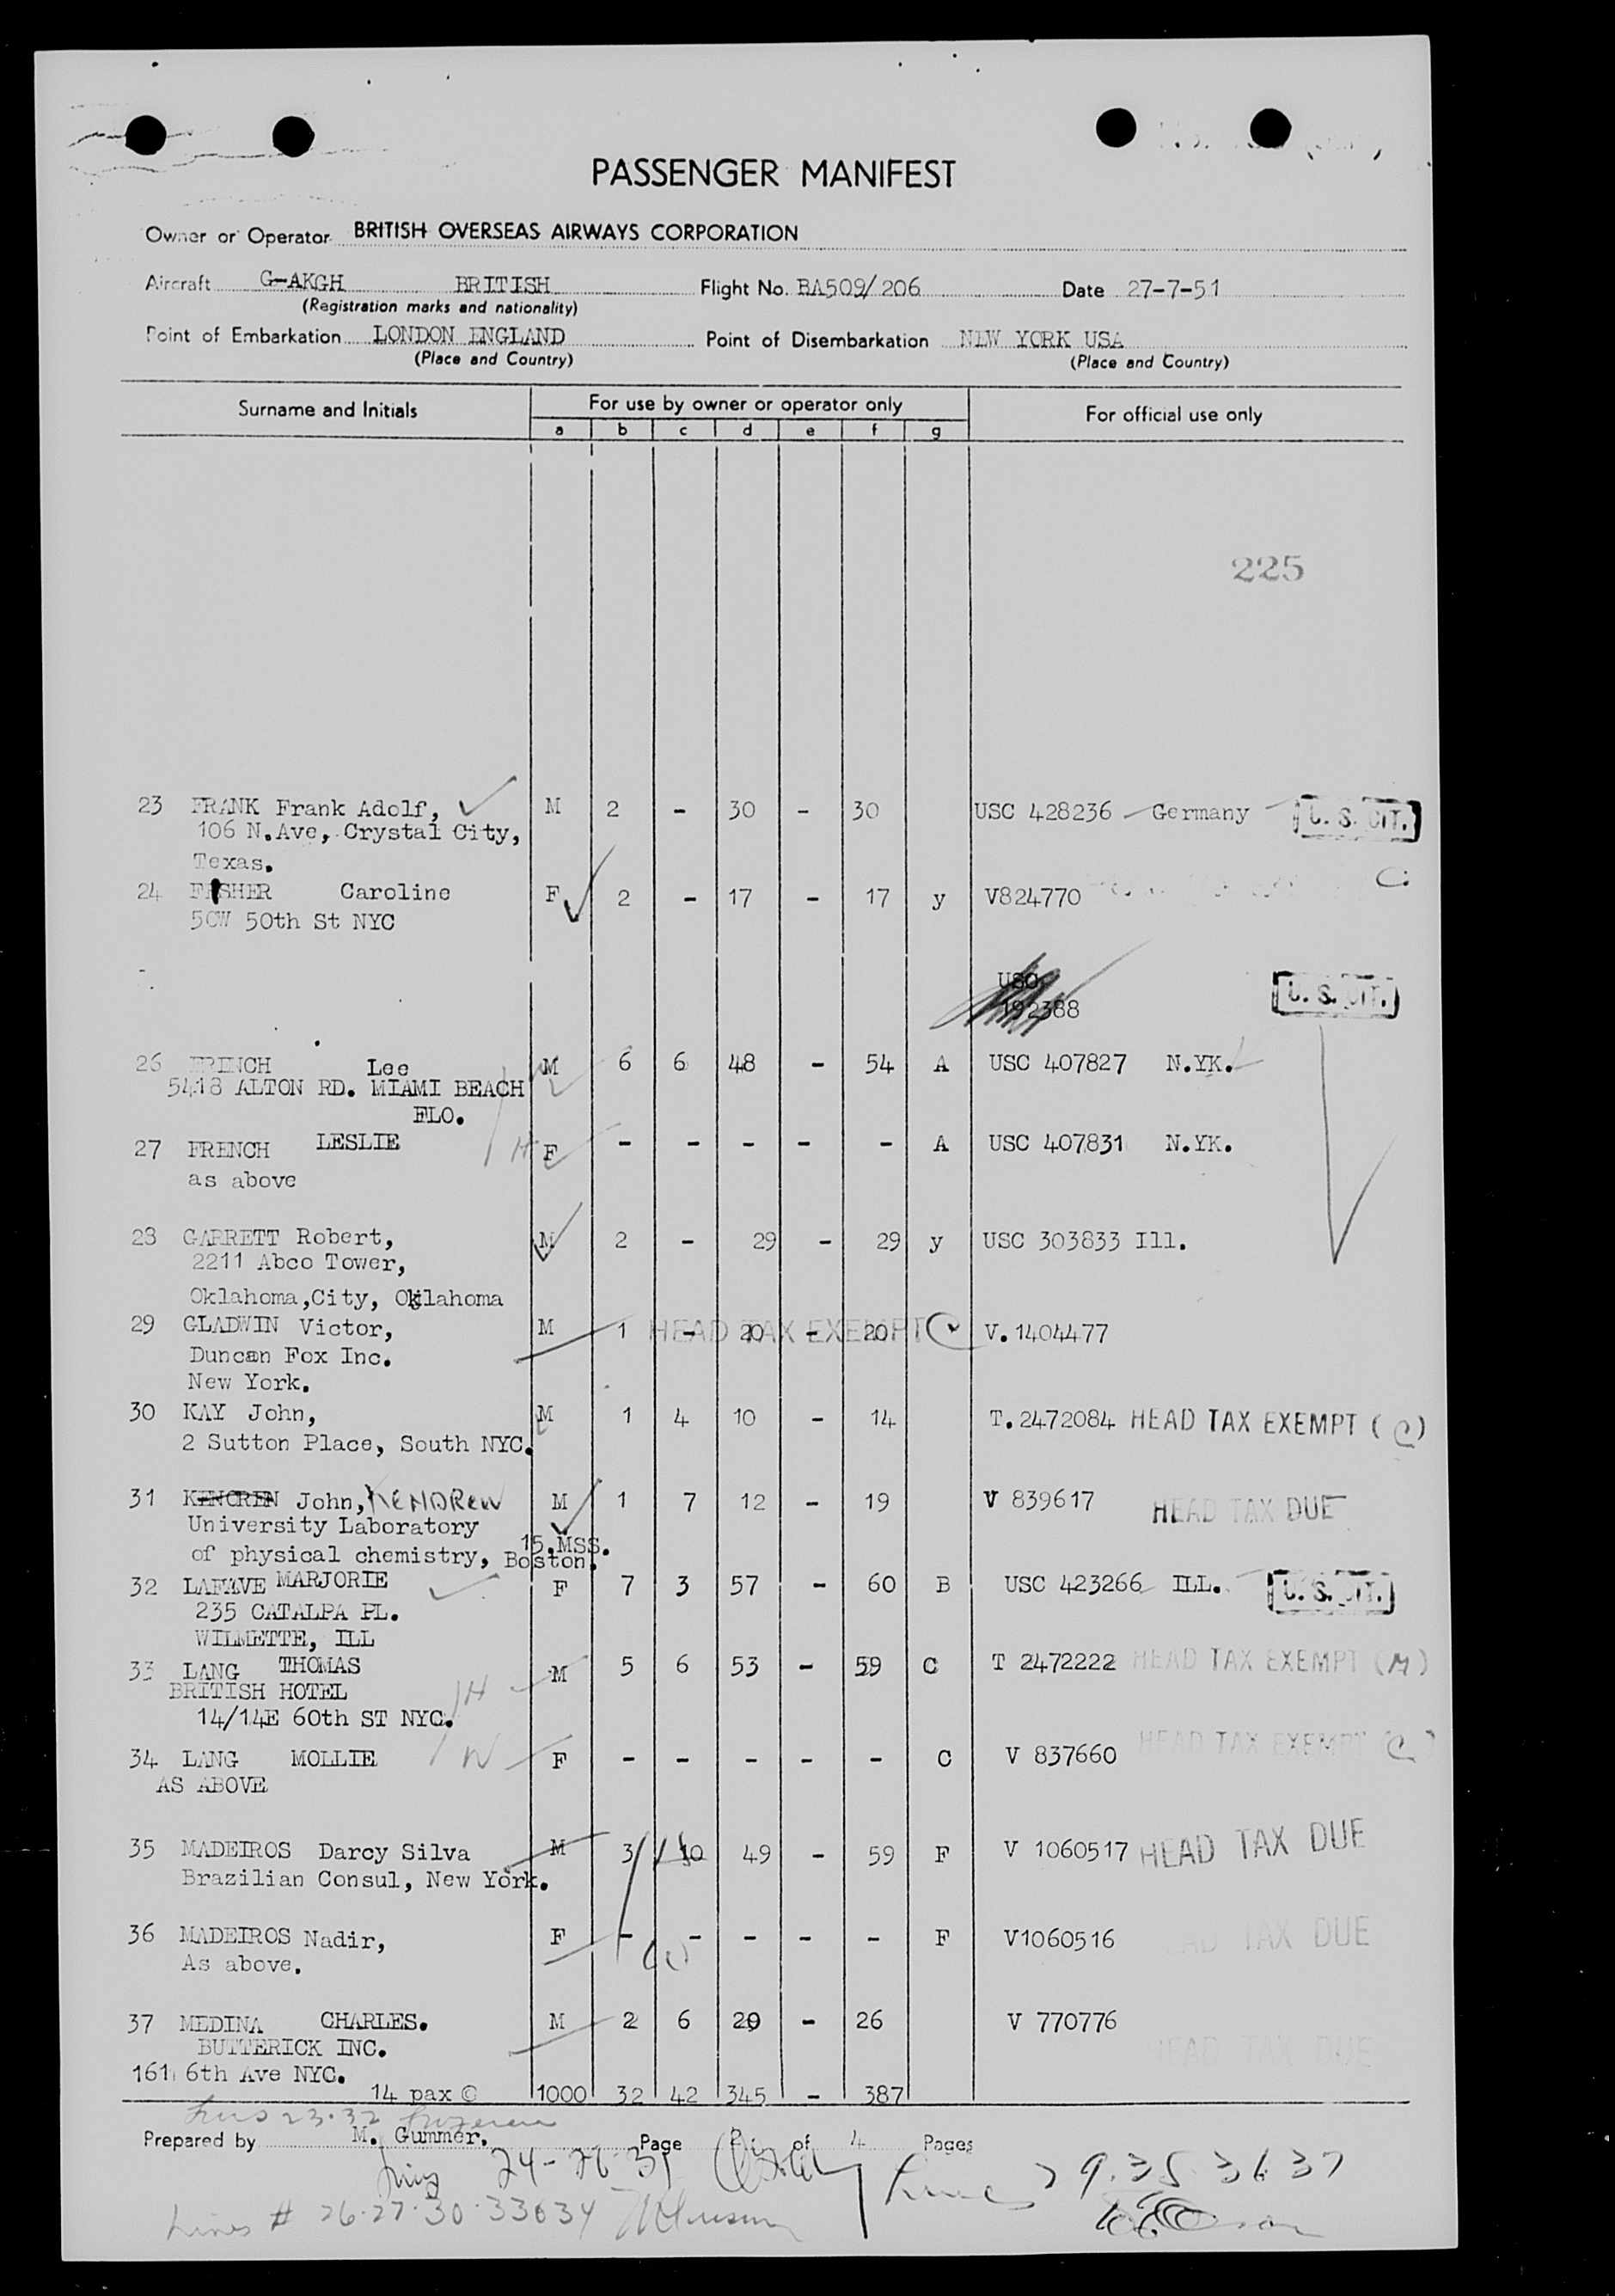 PASSENGER MANIFEST
Owner or Operator BRITISH OVERSEAS AIRWAYS CORPORATION
Aircraft G-AKGH BRITISH Flight No. BA509/206 Date 27-7-51
(Registration marks and nationality)
Point of Embarkation LONDON ENGLAND Point of Disembarkation NEW YORK USA
(Place and Country) (Place and Country)
Surname and Initials For use by owner or operator only For official use only
a b c d e f g
225
23 FRANK Frank Adolf, M 2 - 30 - 30 USC 428236 Germany U. S. CIT.
106 N.Ave, Crystal City,
Texas.
24 FISHER Caroline F 2 - 17 - 17 y V824770 C
50W 50th St NYC
USC
192388 U. S. CIT.
26 FRENCH Lee M 6 6 48 - 54 A USC 407827 N.YK.
5418 ALTON RD. MIAMI BEACH
FLO.
27 FRENCH LESLIE H F - - - - - A USC 407831 N.YK.
as above
28 GARRETT Robert, M 2 - 29 - 29 y USC 303833 Ill.
2211 Abco Tower,
Oklahoma,City, Oklahoma
29 GLADWIN Victor, M 1 - 20 - 20 HEAD TAX EXEMPT (C) V.1404477
Duncan Fox Inc.
New York.
30 KAY John, M 1 4 10 - 14 T.2472084 HEAD TAX EXEMPT (C)
2 Sutton Place, South NYC.
31 KENCREN John, KENDREW M 1 7 12 - 19 V 839617 HEAD TAX DUE
University Laboratory
of physical chemistry, Boston 15,MSS.
32 LAFAVE MARJORIE F 7 3 57 - 60 B USC 423266 ILL. U. S. CIT.
235 CATALPA PL.
WILMETTE, ILL
33 LANG THOMAS H M 5 6 53 - 59 C T 2472222 HEAD TAX EXEMPT (M)
BRITISH HOTEL
14/14E 60th ST NYC.
34 LANG MOLLIE W F - - - - - C V 837660 HEAD TAX EXEMPT (C)
AS ABOVE
35 MADEIROS Darcy Silva M 3 10 49 - 59 F V 1060517 HEAD TAX DUE
Brazilian Consul, New York.
36 MADEIROS Nadir, F - - - - - F V1060516 HEAD TAX DUE
As above.
37 MEDINA CHARLES. M 2 6 20 - 26 V 770776 HEAD TAX DUE
BUTTERICK INC.
161 6th Ave NYC.
14 pax © 1000 32 42 345 - 387
23.32
Prepared by M. Gummer. Page 2 of 4 Pages
24-28-31 Lines 29.35 36 37
Lines # 26.27.30.33&34